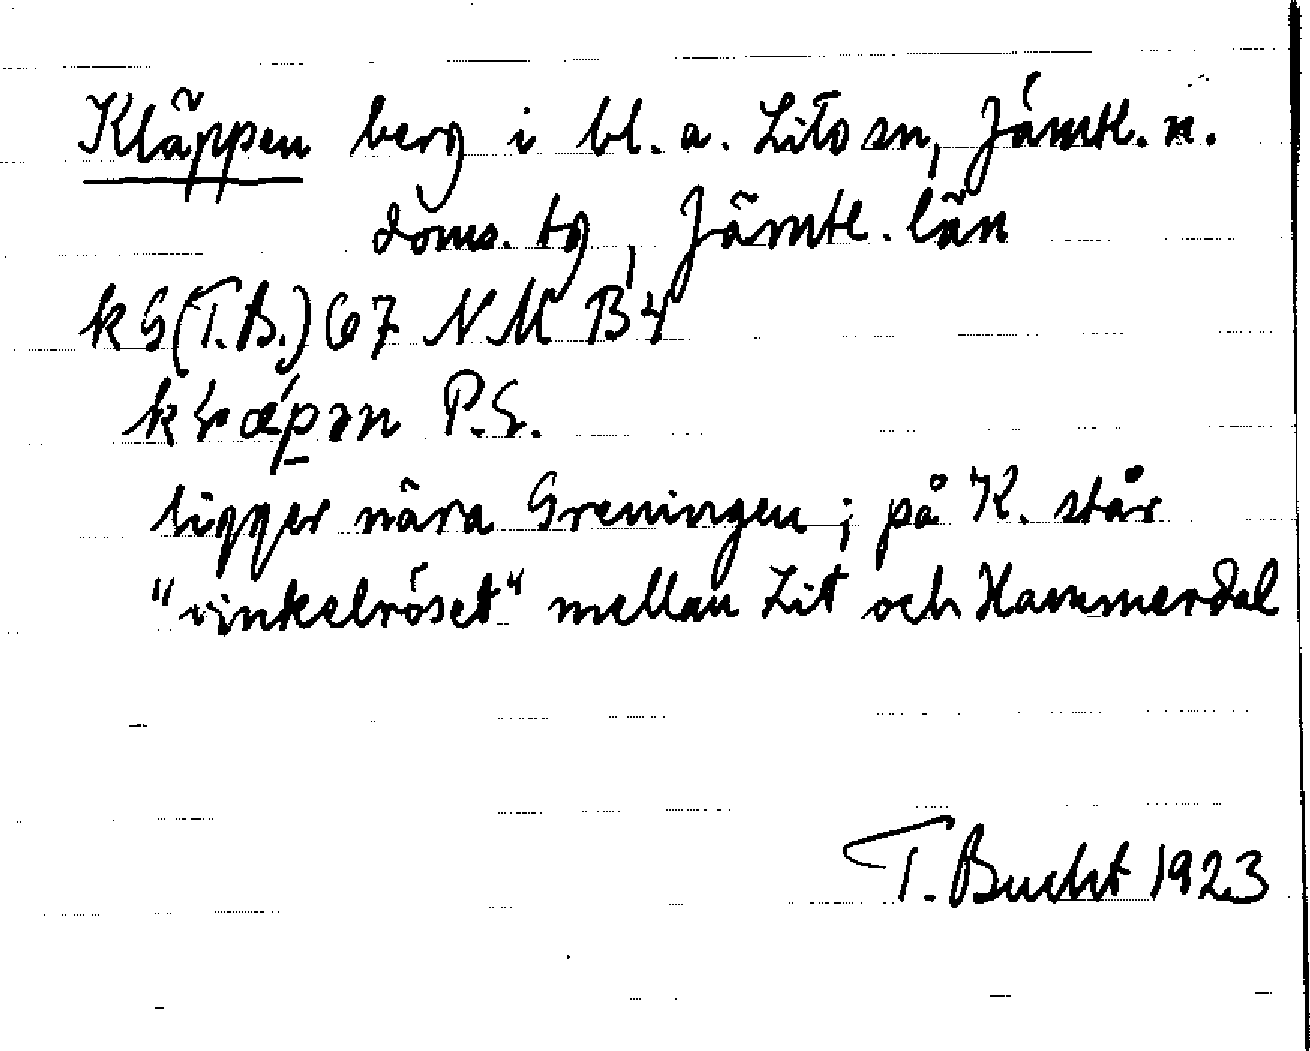 Kläppen berg i bl. a. Lits sn, Jämtl. n.
doms. tg, Jämtl. län
kG (T.B.) 67 NM B4
P.G.
ligger nära Greningen; på K. står
"vinkelröset" mellan Lit och Hammerdal
T. Bucht 1923